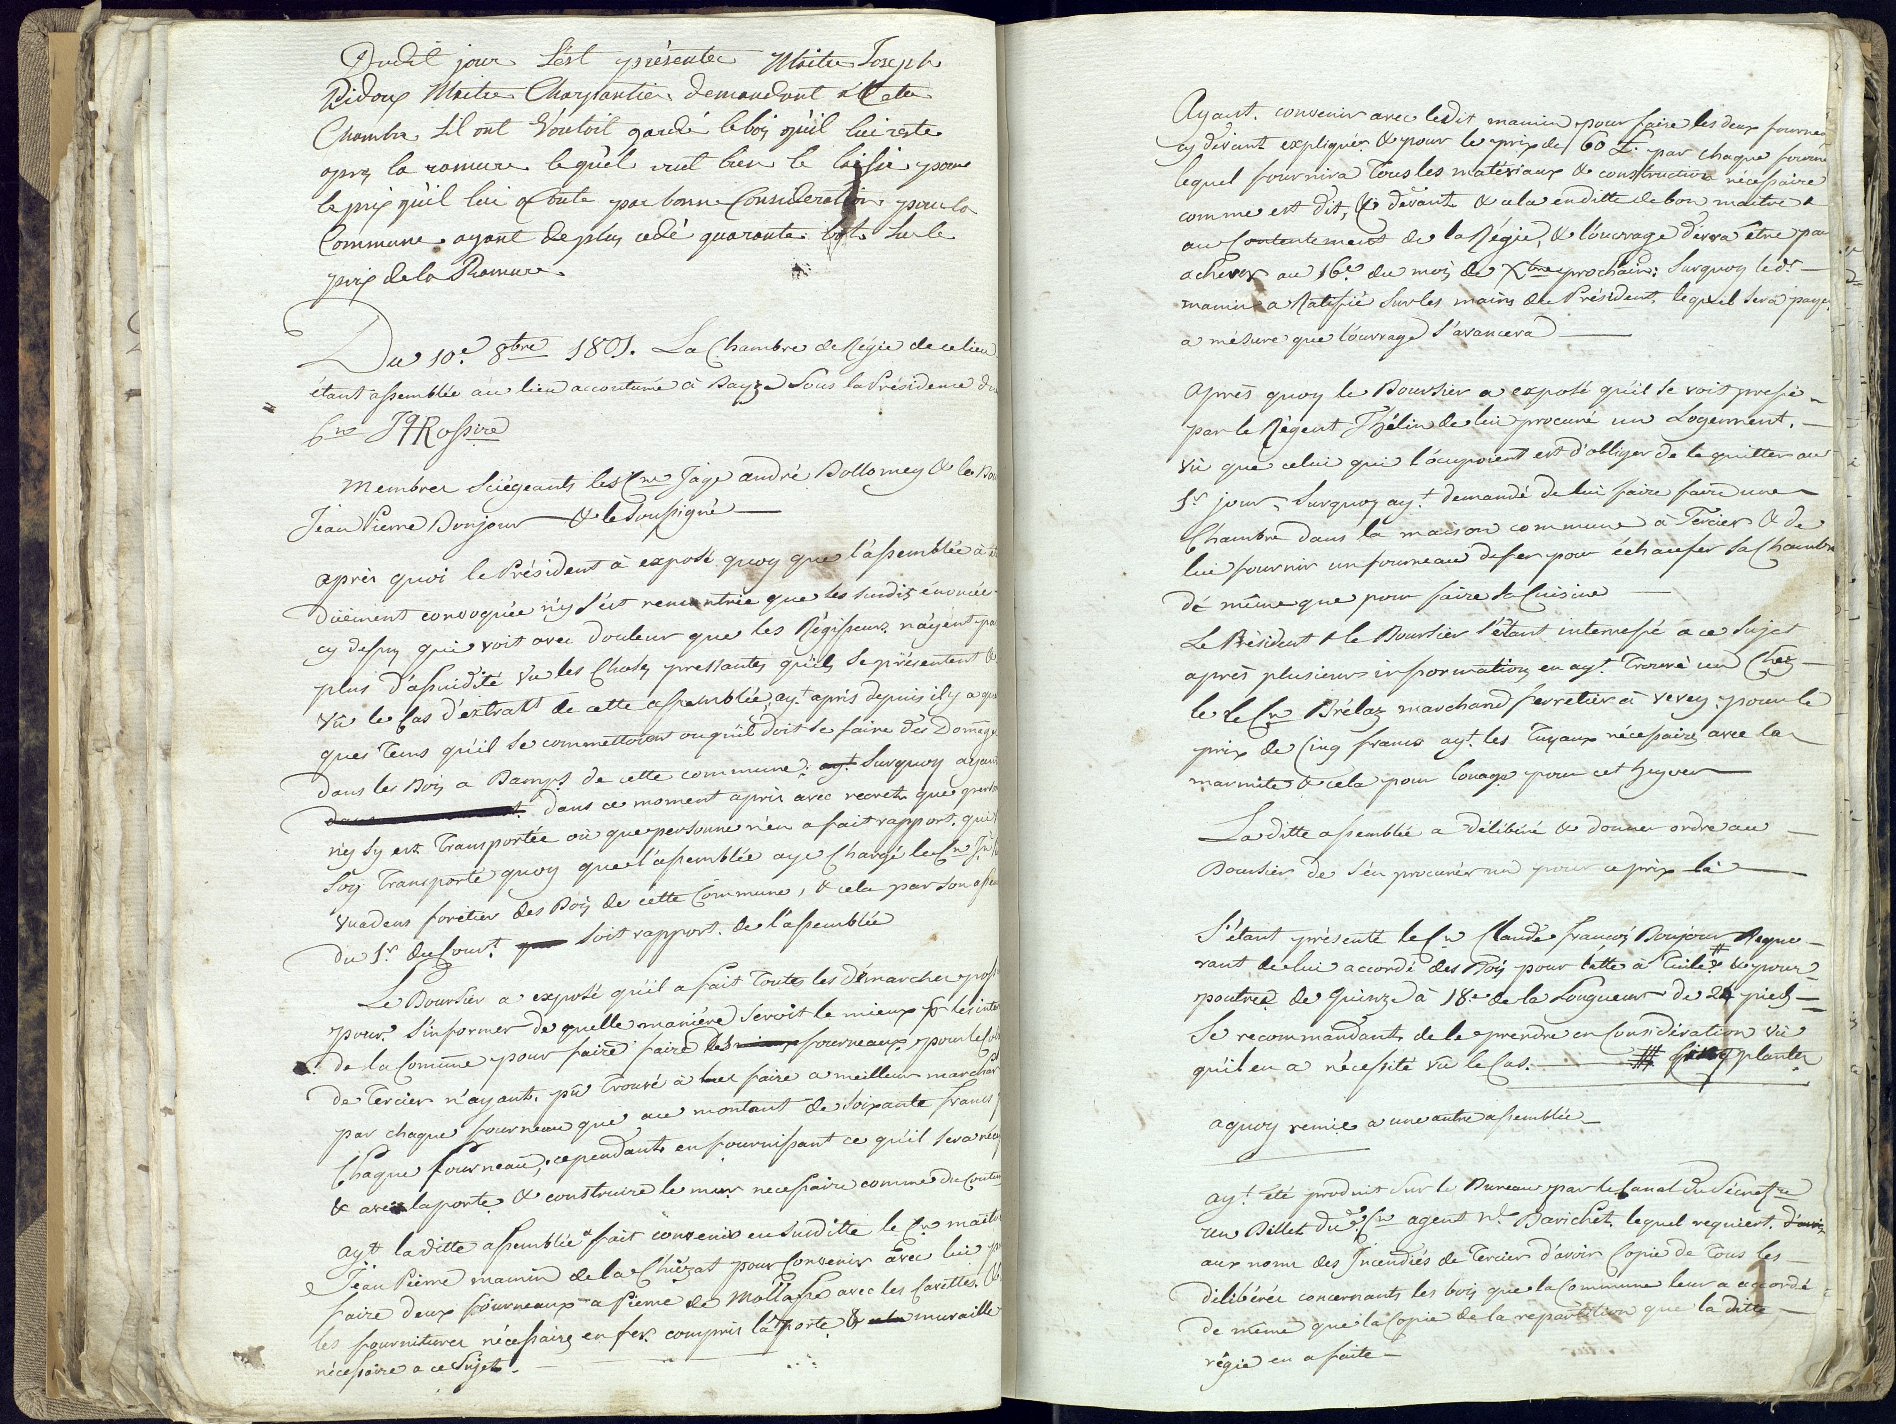 Dudit jour s'est présentée Maitre Joseph
Pidoux Maitre Charpantier demandant à Cete
Chambre s'il ont voutoit gardé le boy qu'il lui reste
aprez la ramure lequ'el veut bien le laisse pour
le prix qu'il lui Coute par bonne Consideration pour la
Commune ayant de plus cedé quarante batz sur le
prix de la Ramure.
Du 10.e 8bre 1801. La Chambre de Régie de ce lieu
étant assemblée au lieu accoutumé à Bayze Sous la Présidence du
Cn Jq Rossire
Membres Sciégeants les Cns Jaqe andré Dollomey & le Bou
Jean Pierre Bonjour & le Soussigné
après quoi le Président à exposé quoy que l'assemblée à
duëment convoquée n'y s'est rencontrée que les susdits énoncée
cy dessus qui voit avec douleur que les Régisseurs n'ayent pa
plus d'assuidité vû les Choses pressantes qu'ils se présentent &
vû le Cas d'extratt de cette assemblée, ayt apris depuis il y a que
ques Tems qu'il se commettoient ou qu'il doit se faire des Domages
dans les Bois a Bamps de cette commune; Surquoy ayant
dans ce moment apris avec regrets que perso
n'ÿ sy est Transportée où que personne n'en a fait rapport. qui
soy Transporté quoy que l'assemblée aye Chargé le Cn Jn
Vuadens forétier des Bois de cette Commune, & cela par son assem
du 1r du Court soit rapport. de l'assemblée
Le Boursier a exposé qu'il a fait Toutes les démarches poss
pour s'informer de quelle manière seroit le mieux pr les inte
de la Comune pour faire faire des fourneaux pour le
de Tercier n'ayant. pû Trouvé à les faire a meilleur marché
par chaque fourneau que au montant de Soixante francs
Chaque fourneau, cependant en fournissant ce qu'il sera néce
& avec la porte & construire le mur necessaire comme du Conten
ayt. la ditte assemblée fait convenir ensuditte le Cn maitre
Jean Pierre mamin de la Chiézat pour Convenir avec lui
faire deux fourneaux a Pierre de Mollasse avec les Cavettes, &
les fournitures nécessaires en fer compris la porte & muraille
nécessaire a ce Sujet.
Ayant. convenir avec ledit mamin pour faire les deux fourneau
cy dévant expliquer & pour le prix de 60 L. par chaque fourne
lequel fournira Tous les matériaux de construction nécessaire
comme est dit, Cy dévant & cela en ditte de bon maitre &
au Contentement de la Régie, & l'ouvrage dévra être par
achever au 16e du mois de Xbre prochain: Surquoy ledt
mamin a Ratifié Sur les mains du Président lequel sera payer
a mésure que l'ouvrage s'avancera
Après quoy le Boursier a exposé qu'il se voit pressé
par le Régent Thélin de lui procuré un Logement.
vû que celui qui l'ocupoient est d'obliger de le quitter au
1r jour, Surquoy ayt demandé de lui faire faire une
Chambre dans la maison commune à Tercier & de
lui fournir un fourneau de fer pour échaufer sa Chambre
dé même que pour faire sa Cuisine
Le Président & le Boursier s'étant interressé a ce Sujet
après plusieurs informations en ayt. Trouvé un Chez
le le Cn Brélaz marchand ferretier à Vevey pour le
prix de Cinq francs ayt. les Tuyaux nécessaires avec la
marmite & cela pour louage pour cet hyver
La ditte assemblée a délibéré & donner ordre au
Boursier de s'en procurér un pour ce prix là
S'étant présenté le Cn Claude françois Bonjour Reque
rant de lui accordé des Bois pour latte à Tuile # & pour
poutres de Quinze à 18e de la Longueur de 24 pieds
Se recommandant de le prendre en Considération vû
qu'il en a nécessité vû le Cas. # planter
aquoy remis a une autre assemblée
ayt. été produit sur le Bureau par le Canal du Sécretre
un Billet du Cn agent nl Barichet, lequel requiert.
aux noms des Incendiés de Tercier d'avoir Copie de Tous les
délibérée concernants les bois que la Commune leur a accordé
de même que la Copie de la repartition que la ditte
régie en a faite